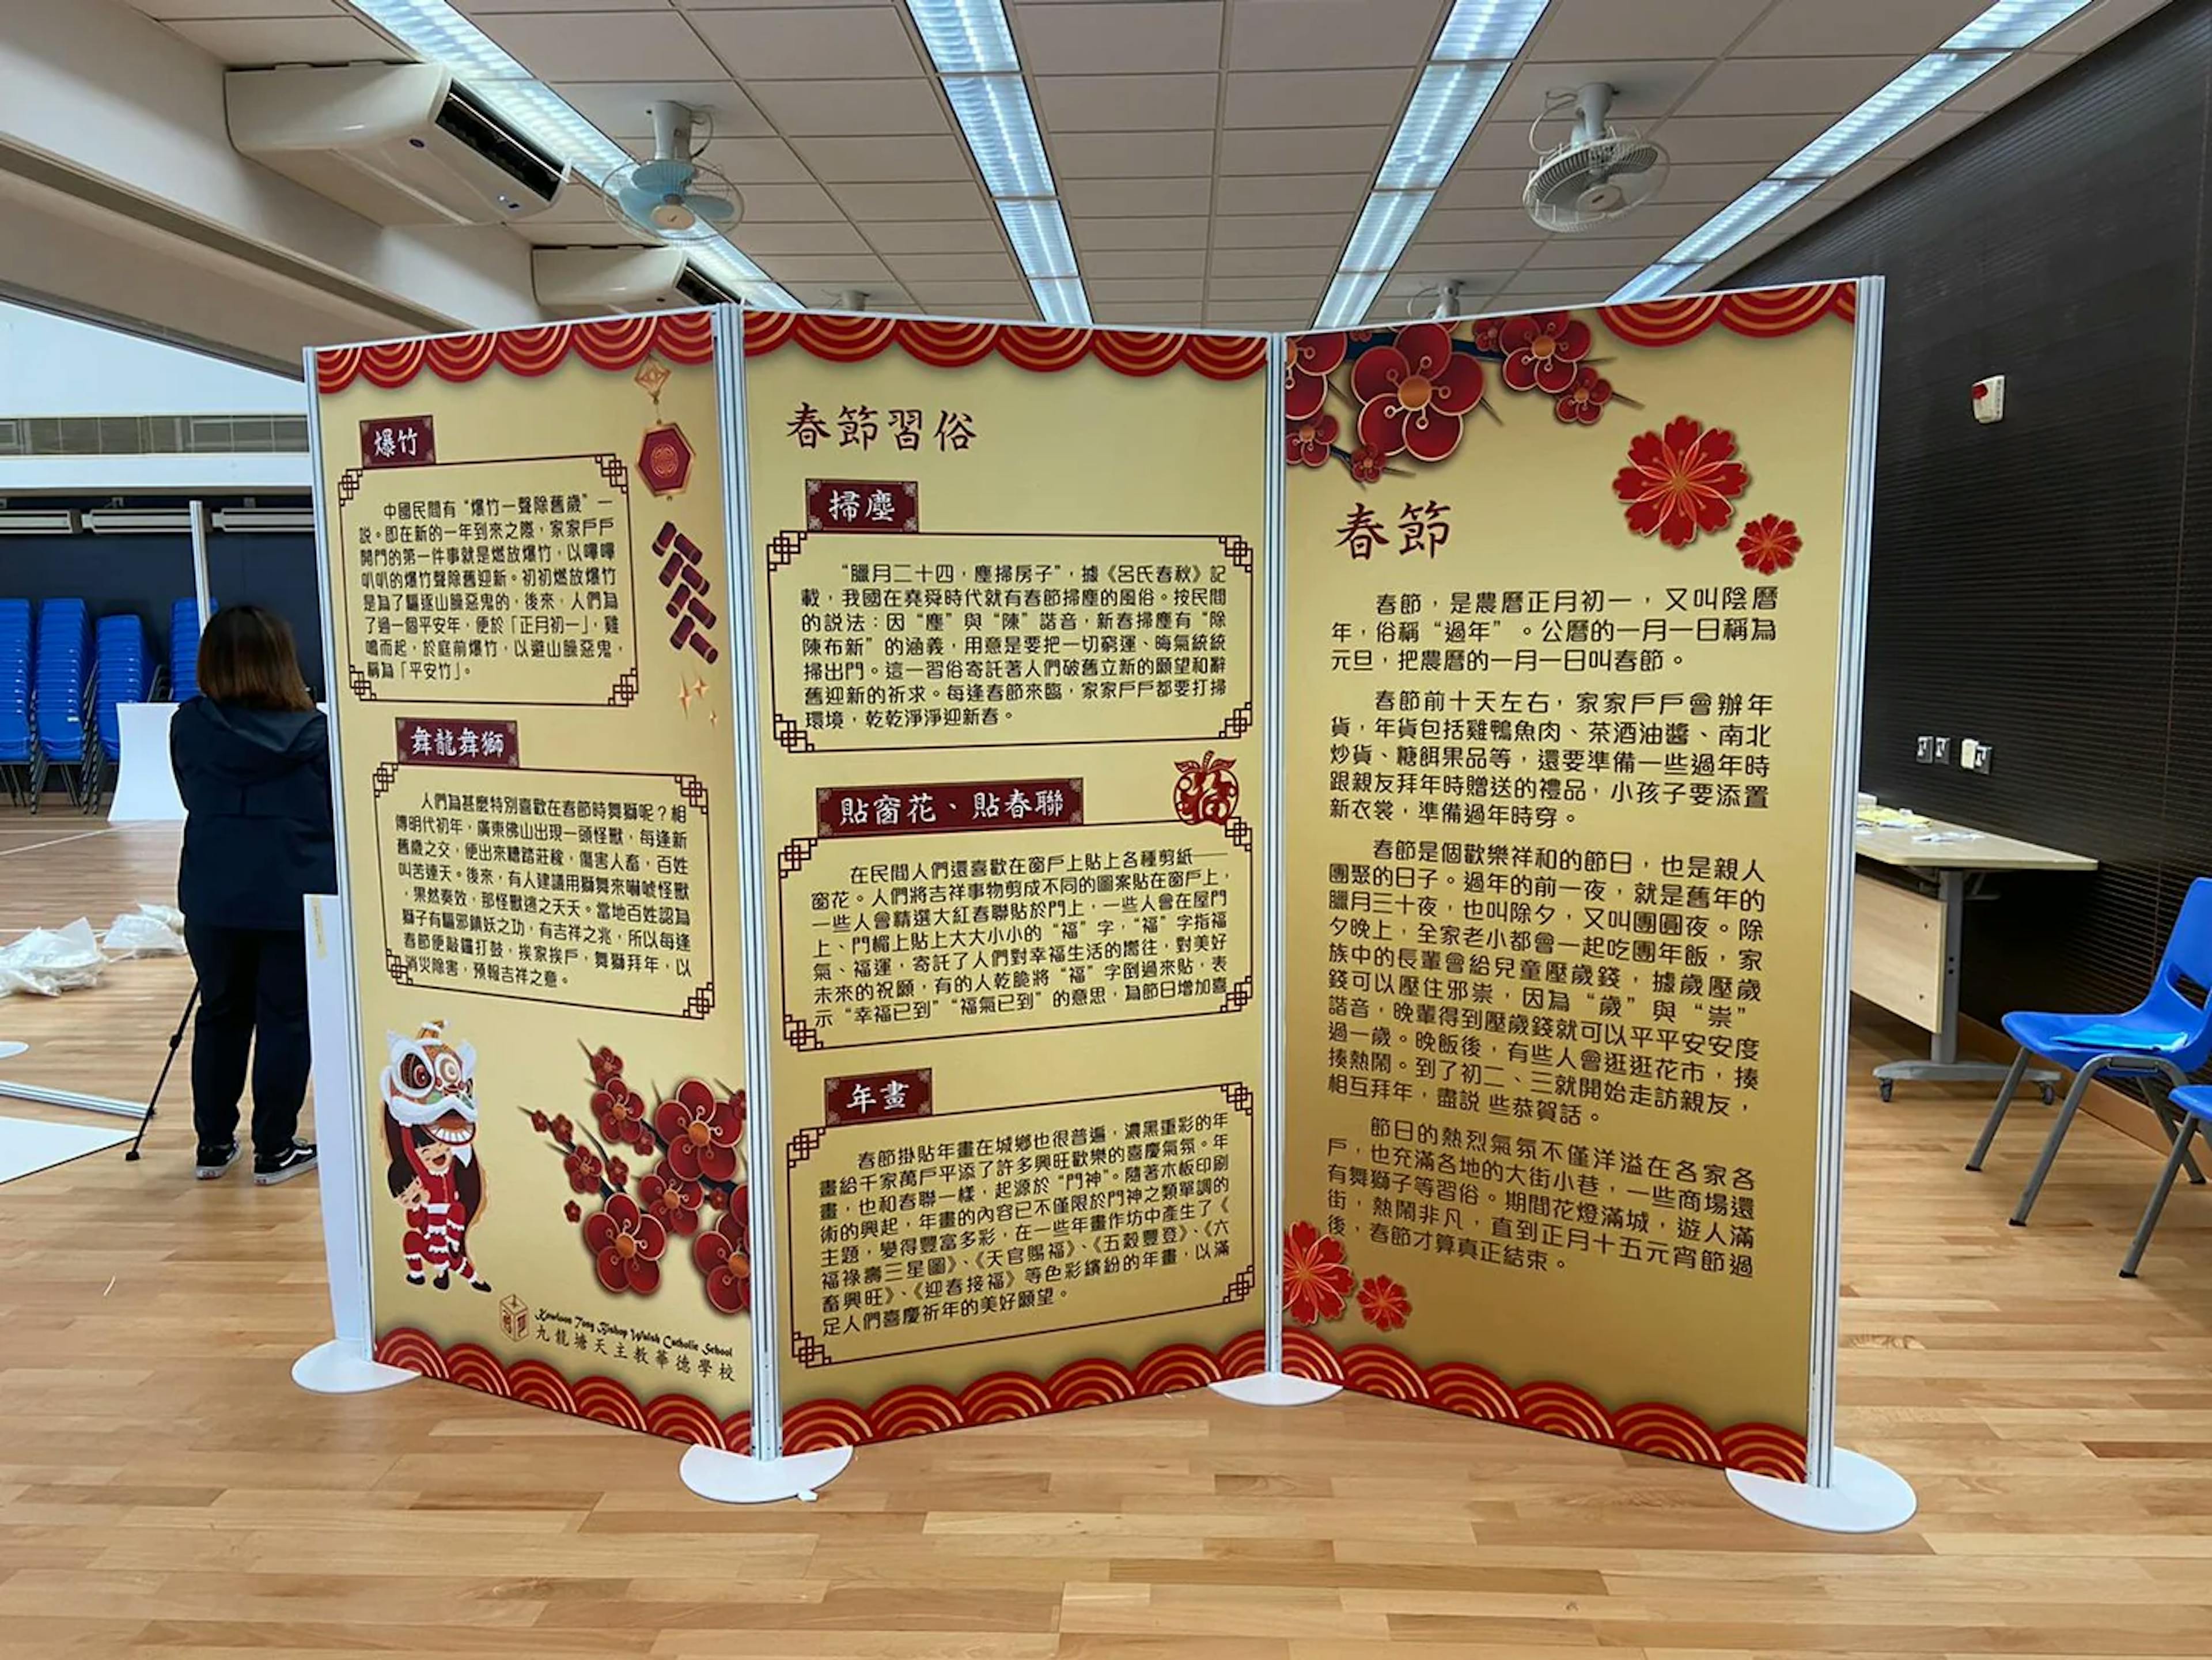 爆竹
中國民間有“爆竹一聲除舊歲”一
說。即在新的一年到來之際，家家戶戶
開門的第一件事就是燃放爆竹，以嗶嗶
叭叭的爆竹聲除舊迎新。初初燃放爆竹
是為了驅逐山臊惡鬼的，後來，人們為
了過一個平安年，便於「正月初一」，雞
鳴而起，於庭前爆竹，以避山臊惡鬼，
稱為「平安竹」。
舞龍舞獅
人們為甚麼特別喜歡在春節時舞獅呢？相
傳明代初年，廣東佛山出現一頭怪獸，每逢新
舊歲之交，便出來糟踏莊稼，傷害人畜，百姓
叫苦連天。後來，有人建議用獅舞來嚇唬怪獸
，果然奏效，那怪獸逃之夭夭。當地百姓認為
獅子有驅邪鎮妖之功，有吉祥之兆，所以每逢
春節便敲鑼打鼓，挨家挨戶，舞獅拜年，以
消災除害，預報吉祥之意。
Kowloon Tong Bishop Walsh Catholic School
九龍塘天主教華德學校
春節習俗
掃塵
“臘月二十四，塵掃房子”，據《呂氏春秋》記
載，我國在堯舜時代就有春節掃塵的風俗。按民間
的說法：因“塵”與“陳”諧音，新春掃塵有“除
陳布新”的涵義，用意是要把一切窮運、晦氣統統
掃出門。這一習俗寄託著人們破舊立新的願望和辭
舊迎新的祈求。每逢春節來臨，家家戶戶都要打掃
環境，乾乾淨淨迎新春。
貼窗花、貼春聯
在民間人們還喜歡在窗戶上貼上各種剪紙——
窗花。人們將吉祥事物剪成不同的圖案貼在窗戶上，
一些人會精選大紅春聯貼於門上，一些人會在屋門
上、門楣上貼上大大小小的“福”字，“福”字指福
氣、福運，寄託了人們對幸福生活的嚮往，對美好
未來的祝願，有的人乾脆將“福”字倒過來貼，表
示“幸福已到”“福氣已到”的意思，為節日增加喜
年畫
春節掛貼年畫在城鄉也很普遍，濃黑重彩的年
畫給千家萬戶平添了許多興旺歡樂的喜慶氣氛。年
畫，也和春聯一樣，起源於“門神”。隨著木板印刷
術的興起，年畫的內容已不僅限於門神之類單調的
主題，變得豐富多彩，在一些年畫作坊中產生了《
福祿壽三星圖》、《天官賜福》、《五穀豐登》、《六
畜興旺》、《迎春接福》等色彩繽紛的年畫，以滿
足人們喜慶祈年的美好願望。
春節
春節，是農曆正月初一，又叫陰曆
年，俗稱“過年”。公曆的一月一日稱為
元旦，把農曆的一月一日叫春節。
春節前十天左右，家家戶戶會辦年
貨，年貨包括雞鴨魚肉、茶酒油醬、南北
炒貨、糖餌果品等，還要準備一些過年時
跟親友拜年時贈送的禮品，小孩子要添置
新衣裳，準備過年時穿。
春節是個歡樂祥和的節日，也是親人
團聚的日子。過年的前一夜，就是舊年的
臘月三十夜，也叫除夕，又叫團圓夜。除
夕晚上，全家老小都會一起吃團年飯，家
族中的長輩會給兒童壓歲錢，據歲壓歲
錢可以壓住邪祟，因為“歲”與“祟”
諧音，晚輩得到壓歲錢就可以平平安安度
過一歲。晚飯後，有些人會逛逛花市，揍
揍熱鬧。到了初二、三就開始走訪親友，
相互拜年，盡說 些恭賀話。
節日的熱烈氣氛不僅洋溢在各家各
戶，也充滿各地的大街小巷，一些商場還
有舞獅子等習俗。期間花燈滿城，遊人滿
街，熱鬧非凡，直到正月十五元宵節過
後，春節才算真正結束。